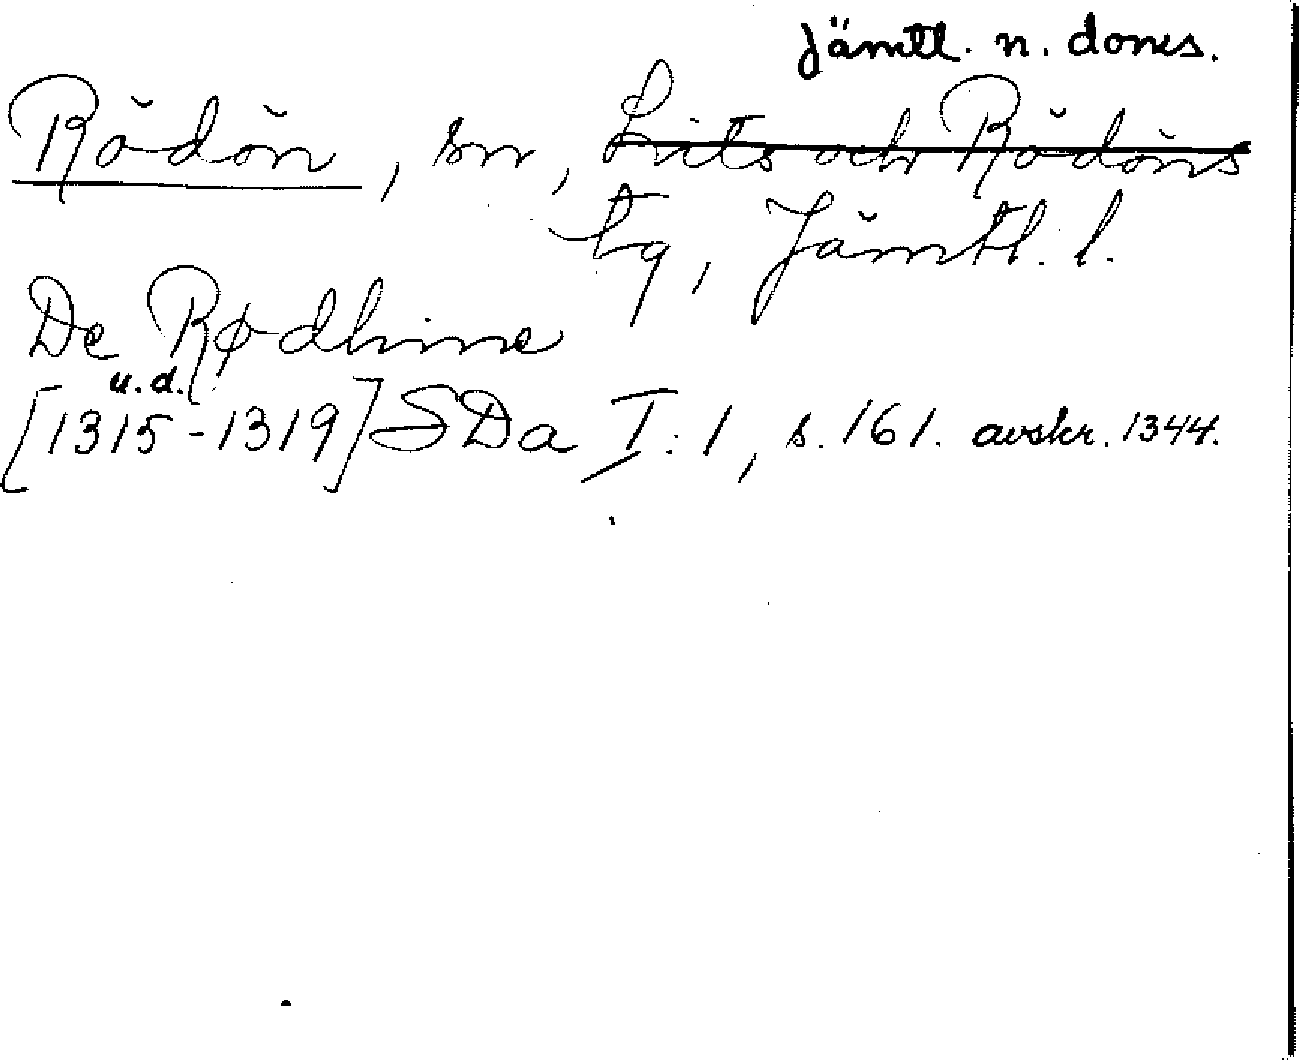 Jämtl. n. doms.
Rödön, sn, Lits och Rödöns
tg, Jämtl. l.
De Rødhine
u.d.
[1315-1319] SDa I:1, s. 161. avskr. 1344.